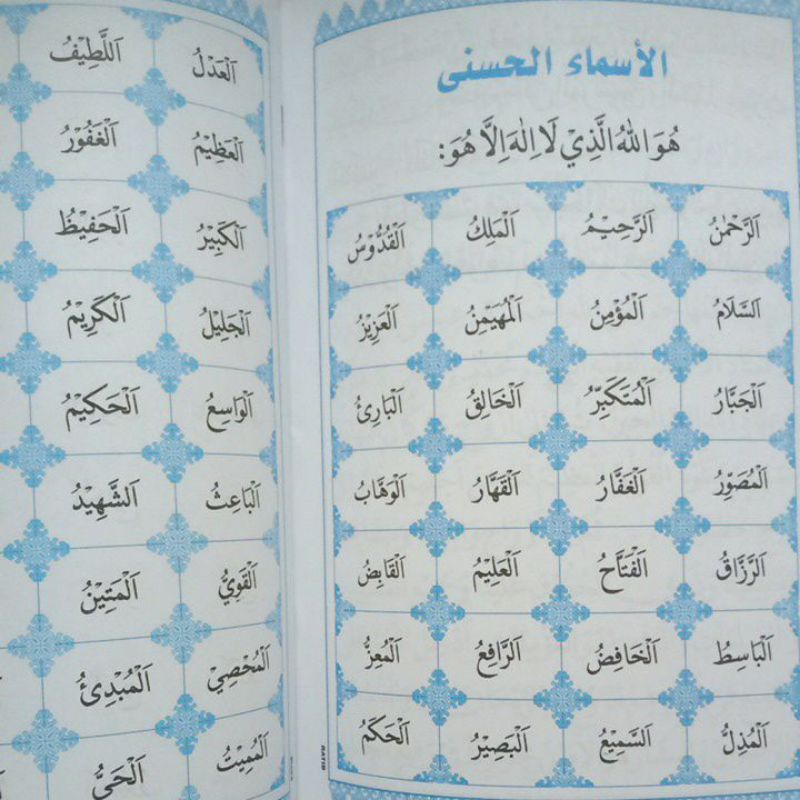 الأسماء الحسنى
هُوَ اللهُ الَّذِيْ لَا اِلٰهَ اِلَّا هُوَ:
اَلرَّحْمٰنُ اَلرَّحِيْمُ اَلْمَلِكُ اَلْقُدُّوْسُ
اَلسَّلَامُ اَلْمُؤْمِنُ اَلْمُهَيْمِنُ اَلْعَزِيْزُ
اَلْجَبَّارُ اَلْمُتَكَبِّرُ اَلْخَالِقُ اَلْبَارِئُ
اَلْمُصَوِّرُ اَلْغَفَّارُ اَلْقَهَّارُ اَلْوَهَّابُ
اَلرَّزَّاقُ اَلْفَتَّاحُ اَلْعَلِيْمُ اَلْقَابِضُ
اَلْبَاسِطُ اَلْخَافِضُ اَلرَّافِعُ اَلْمُعِزُّ
اَلْمُذِلُّ اَلسَّمِيْعُ اَلْبَصِيْرُ اَلْحَكَمُ
RATIB
اَلْعَدْلُ اَللَّطِيْفُ
اَلْعَظِيْمُ اَلْغَفُوْرُ
اَلْكَبِيْرُ اَلْحَفِيْظُ
اَلْجَلِيْلُ اَلْكَرِيْمُ
اَلْوَاسِعُ اَلْحَكِيْمُ
اَلْبَاعِثُ اَلشَّهِيْدُ
اَلْقَوِيُّ اَلْمَتِيْنُ
اَلْمُحْصِيْ اَلْمُبْدِئُ
اَلْمُمِيْتُ اَلْحَيُّ